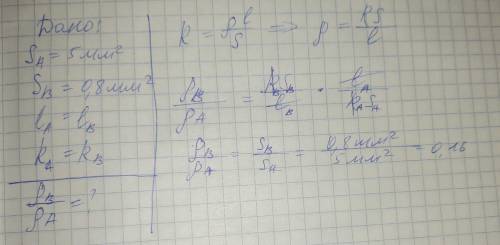 Дано:
S_A = 5 мм²
S_B = 0,8 мм²
l_A = l_B
R_A = R_B
ρ_B / ρ_A = ?
R = ρ l/S => ρ = RS/l
ρ_B / ρ_A = R_B S_B / l_B · l_A / R_A S_A
ρ_B / ρ_A = S_B / S_A = 0,8 мм² / 5 мм² = 0,16